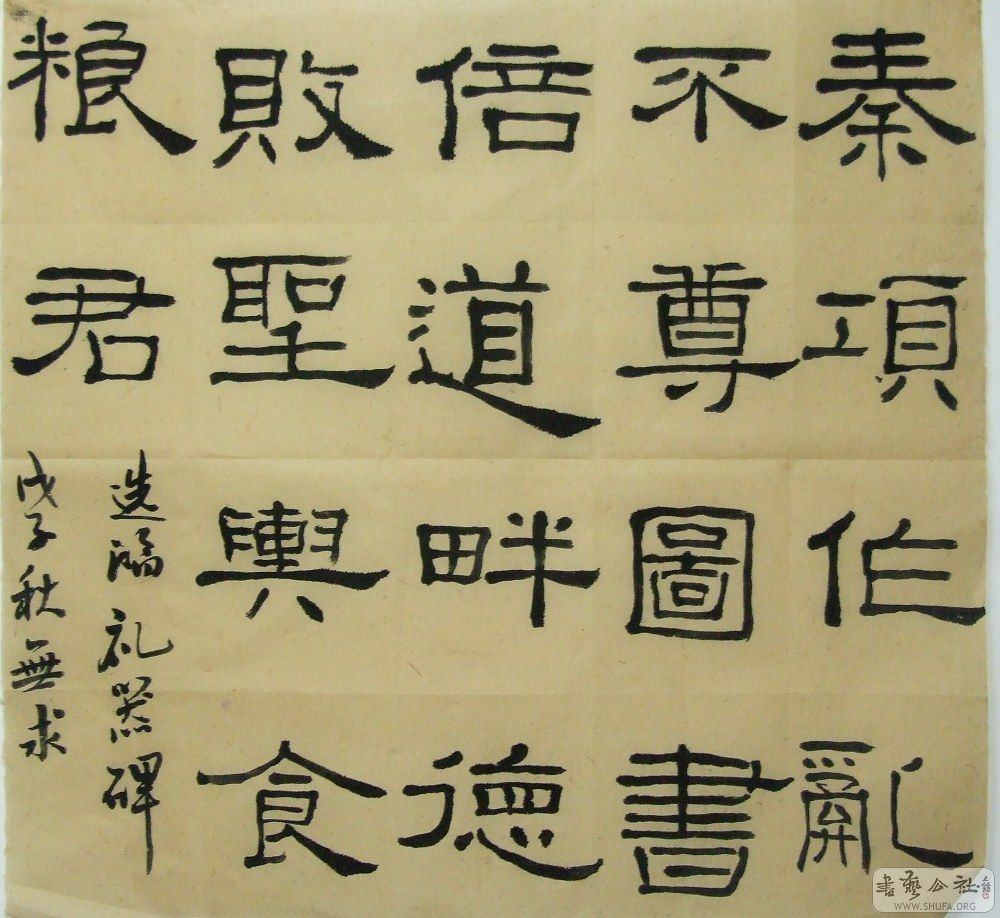 秦項作亂
不尊圖書
倍道畔德
敗聖輿食
粮君
选临礼器碑
戊子秋無求
書藝公社
WWW.SHUFA.ORG